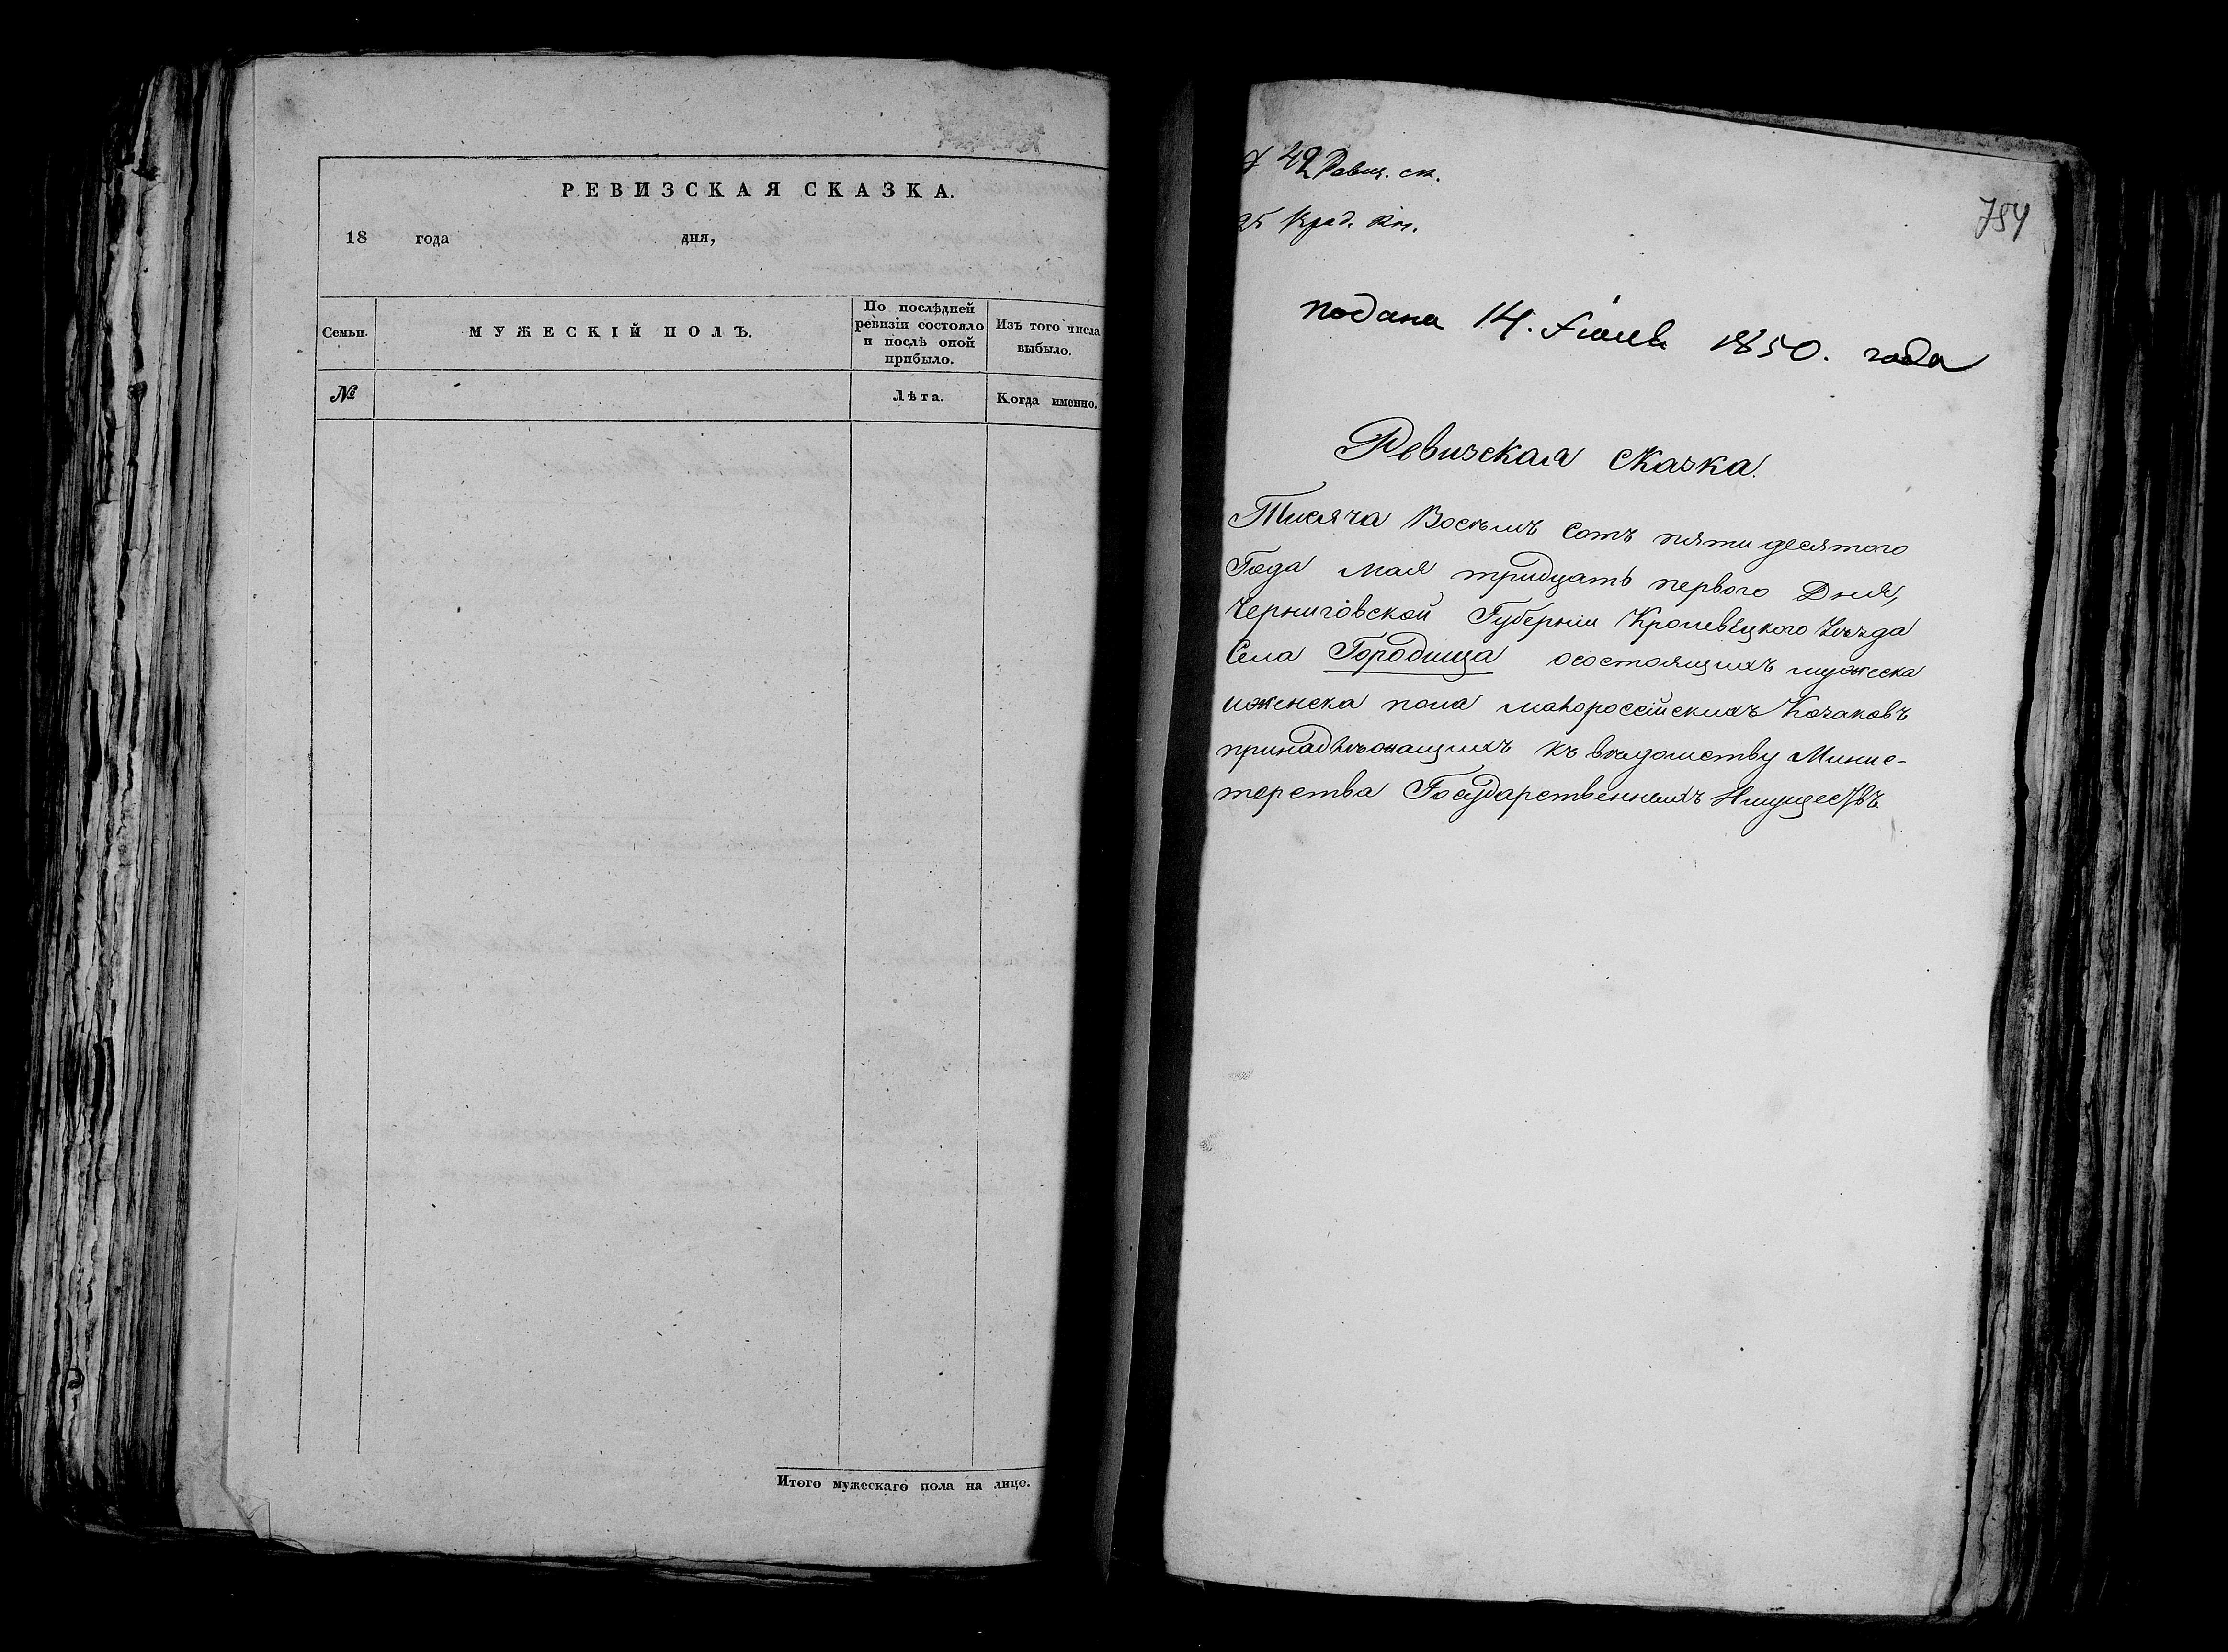 РЕВИЗСКАЯ СКАЗКА.
18 года дня,
Семьи.
МУЖЕСКІЙ ПОЛЪ.
По послѣдней
ревизіи состояло
и послѣ оной
прибыло.
Изъ того числа
выбыло.
№
Лѣта.
Когда именно.
Итого мужескаго пола на лицо.
49 Ревиз. ск.
25
784
подана 14. Іюля 1850. года
Ревизская Сказка.
Тисяча Восѣмъ Сотъ пяти десятого
Года мая тридцать первого Дня,
Черниговской Губерніи Кролевѣцкого Уѣзда
Села Городища осостоящихъ мужеска
иженска пола малороссійскихъ Козаковъ
принадлѣжащихъ къ вѣдомству Минис-
терства Государственныхъ Имуществъ.